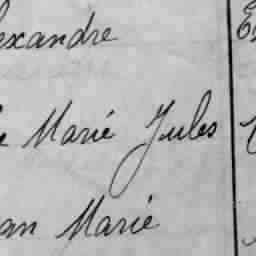 exandre
Marié Jules
an Marié